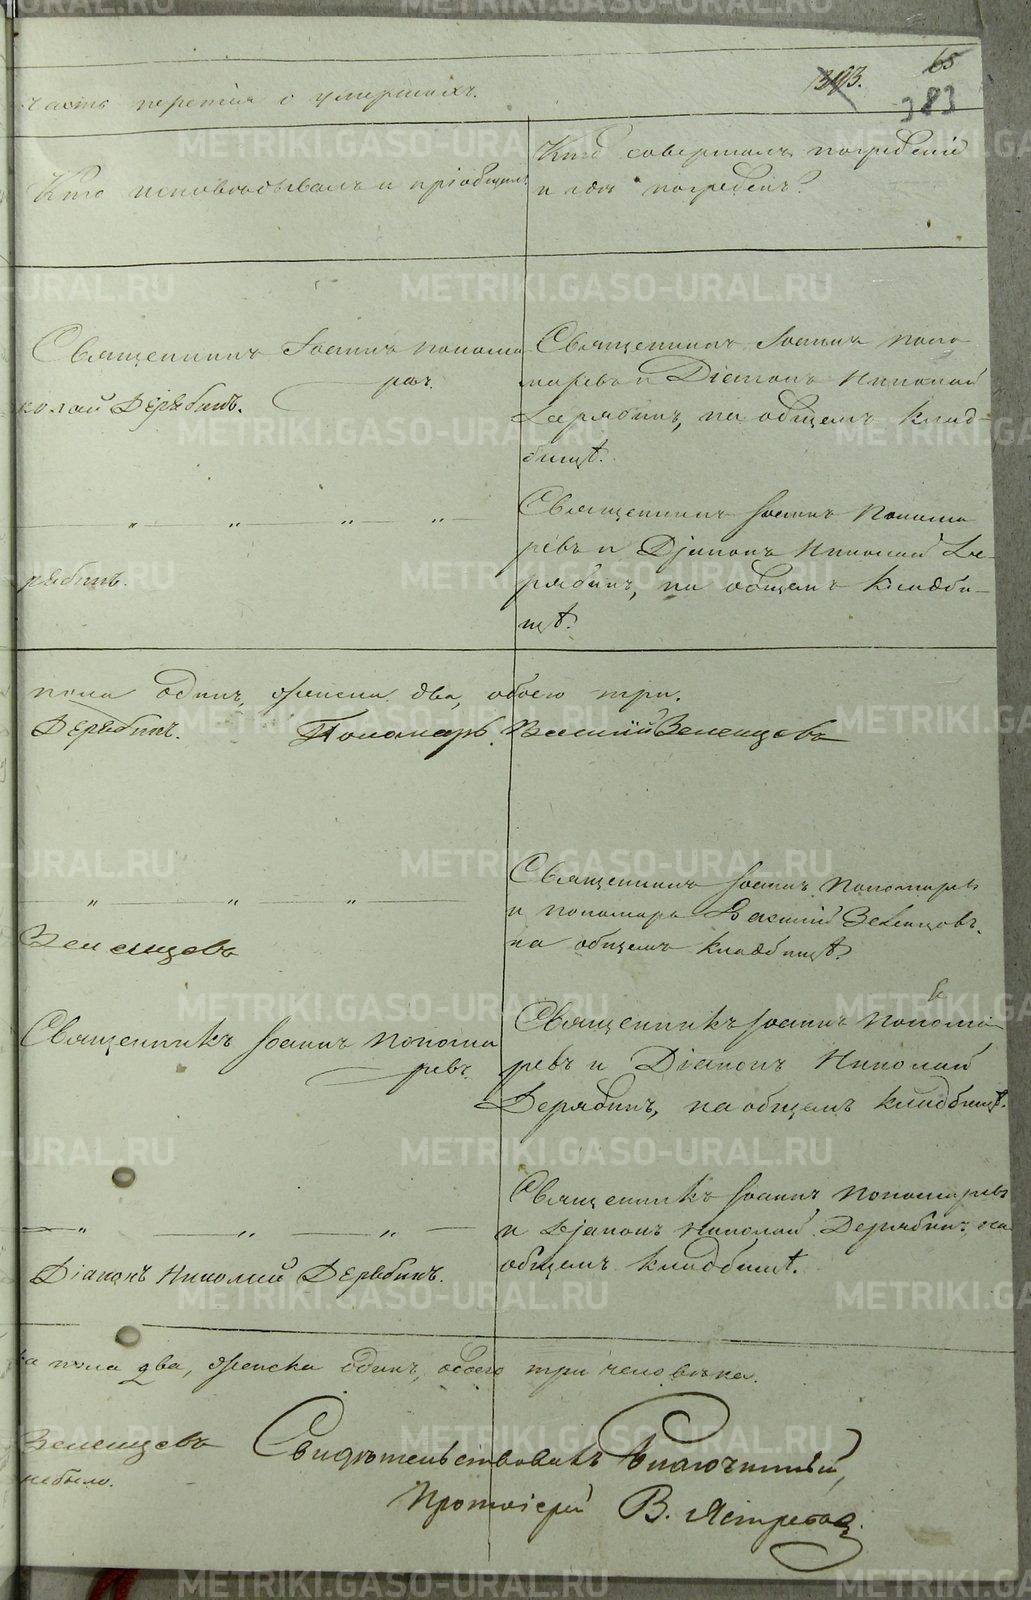 65
393.
383
часть третія о умершихъ.
Кто исповѣдывалъ и пріобщилъ
Кто совершалъ погребеніе
и гдѣ погребенъ?
Священникъ Іоаннъ Понома
ревъ.
колай Дерябинъ.
Священникъ Іоаннъ Поно
маревъ и Діаконъ Николай
Дерябинъ, на общемъ клад-
бищѣ.
— „ — „ „ — „ —
рябинъ.
Священникъ Іоаннъ Понома
ревъ и Діаконъ Николай Де-
рябинъ, на общемъ кладби-
щѣ.
пола одинъ, женска два, обоего три.
Дерябинъ. Пономарь Василій Зеленцовъ
„ „ „
Зеленцовъ
Священникъ Іоаннъ Пономаревъ
и пономарь Василій Зеленцовъ.
на общемъ кладбищѣ.
Священникъ Іоаннъ Понома
ревъ.
Священникъ Іоаннъ Понома-
ревъ и Діаконъ Николай
Дерябинъ, на общемъ кладбищѣ.
— „ „ — „ —
Діаконъ Николай Дерябинъ.
Священникъ Іоаннъ Пономаревъ
и Діаконъ Николай Дерябинъ на
общемъ кладбищѣ.
ка пола два, женска одинъ, обоего три человѣка.
Зеленцовъ
небыло.
Свидѣтельствовалъ Благочинный,
Протоіерей В. Ястребовъ.
METRIKI.GASO-URAL.RU